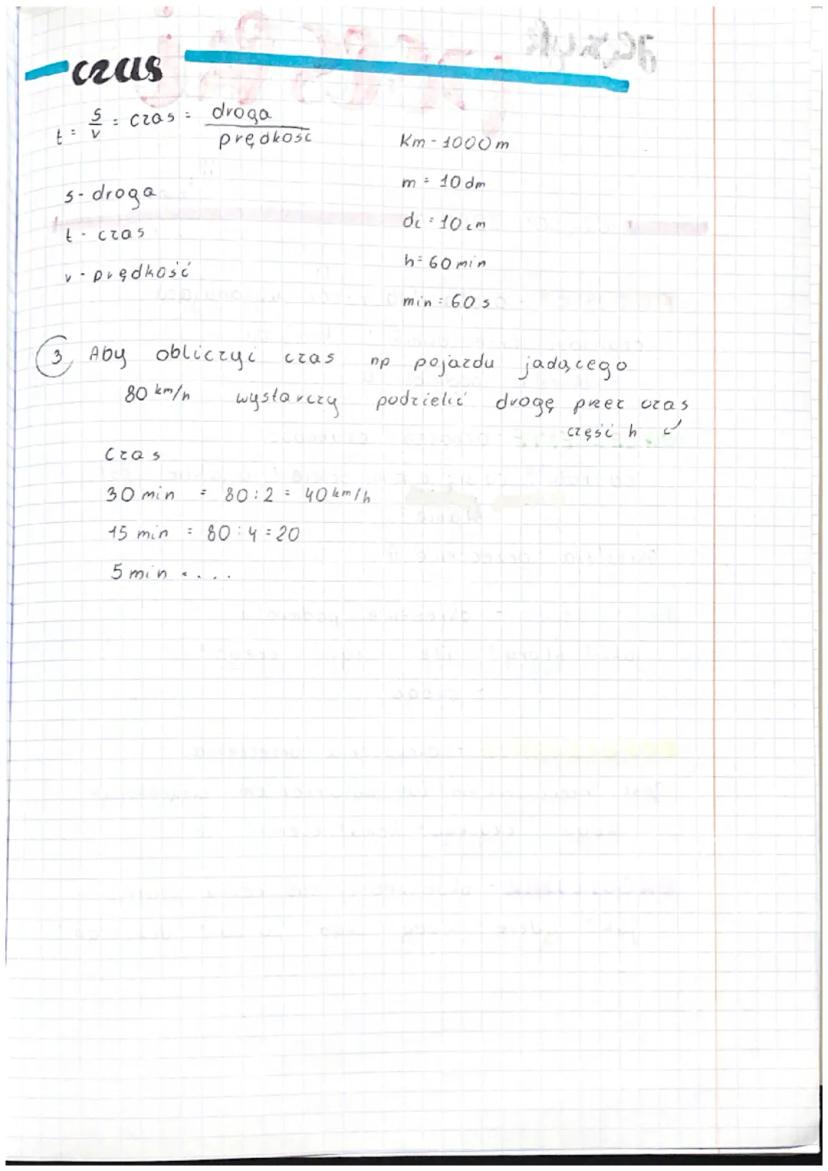 czas
t = s/v = czas = droga/prędkość
s - droga
t - czas
v - prędkość
Km - 1000 m
m = 10 dm
dc = 10 cm
h = 60 min
min = 60 s
3 Aby obliczyć czas np pojazdu jadącego
80 km/h wystarczy podzielić drogę przez czas
część h
Czas
30 min = 80 : 2 = 40 km/h
15 min = 80 : 4 = 20
5 min = ....